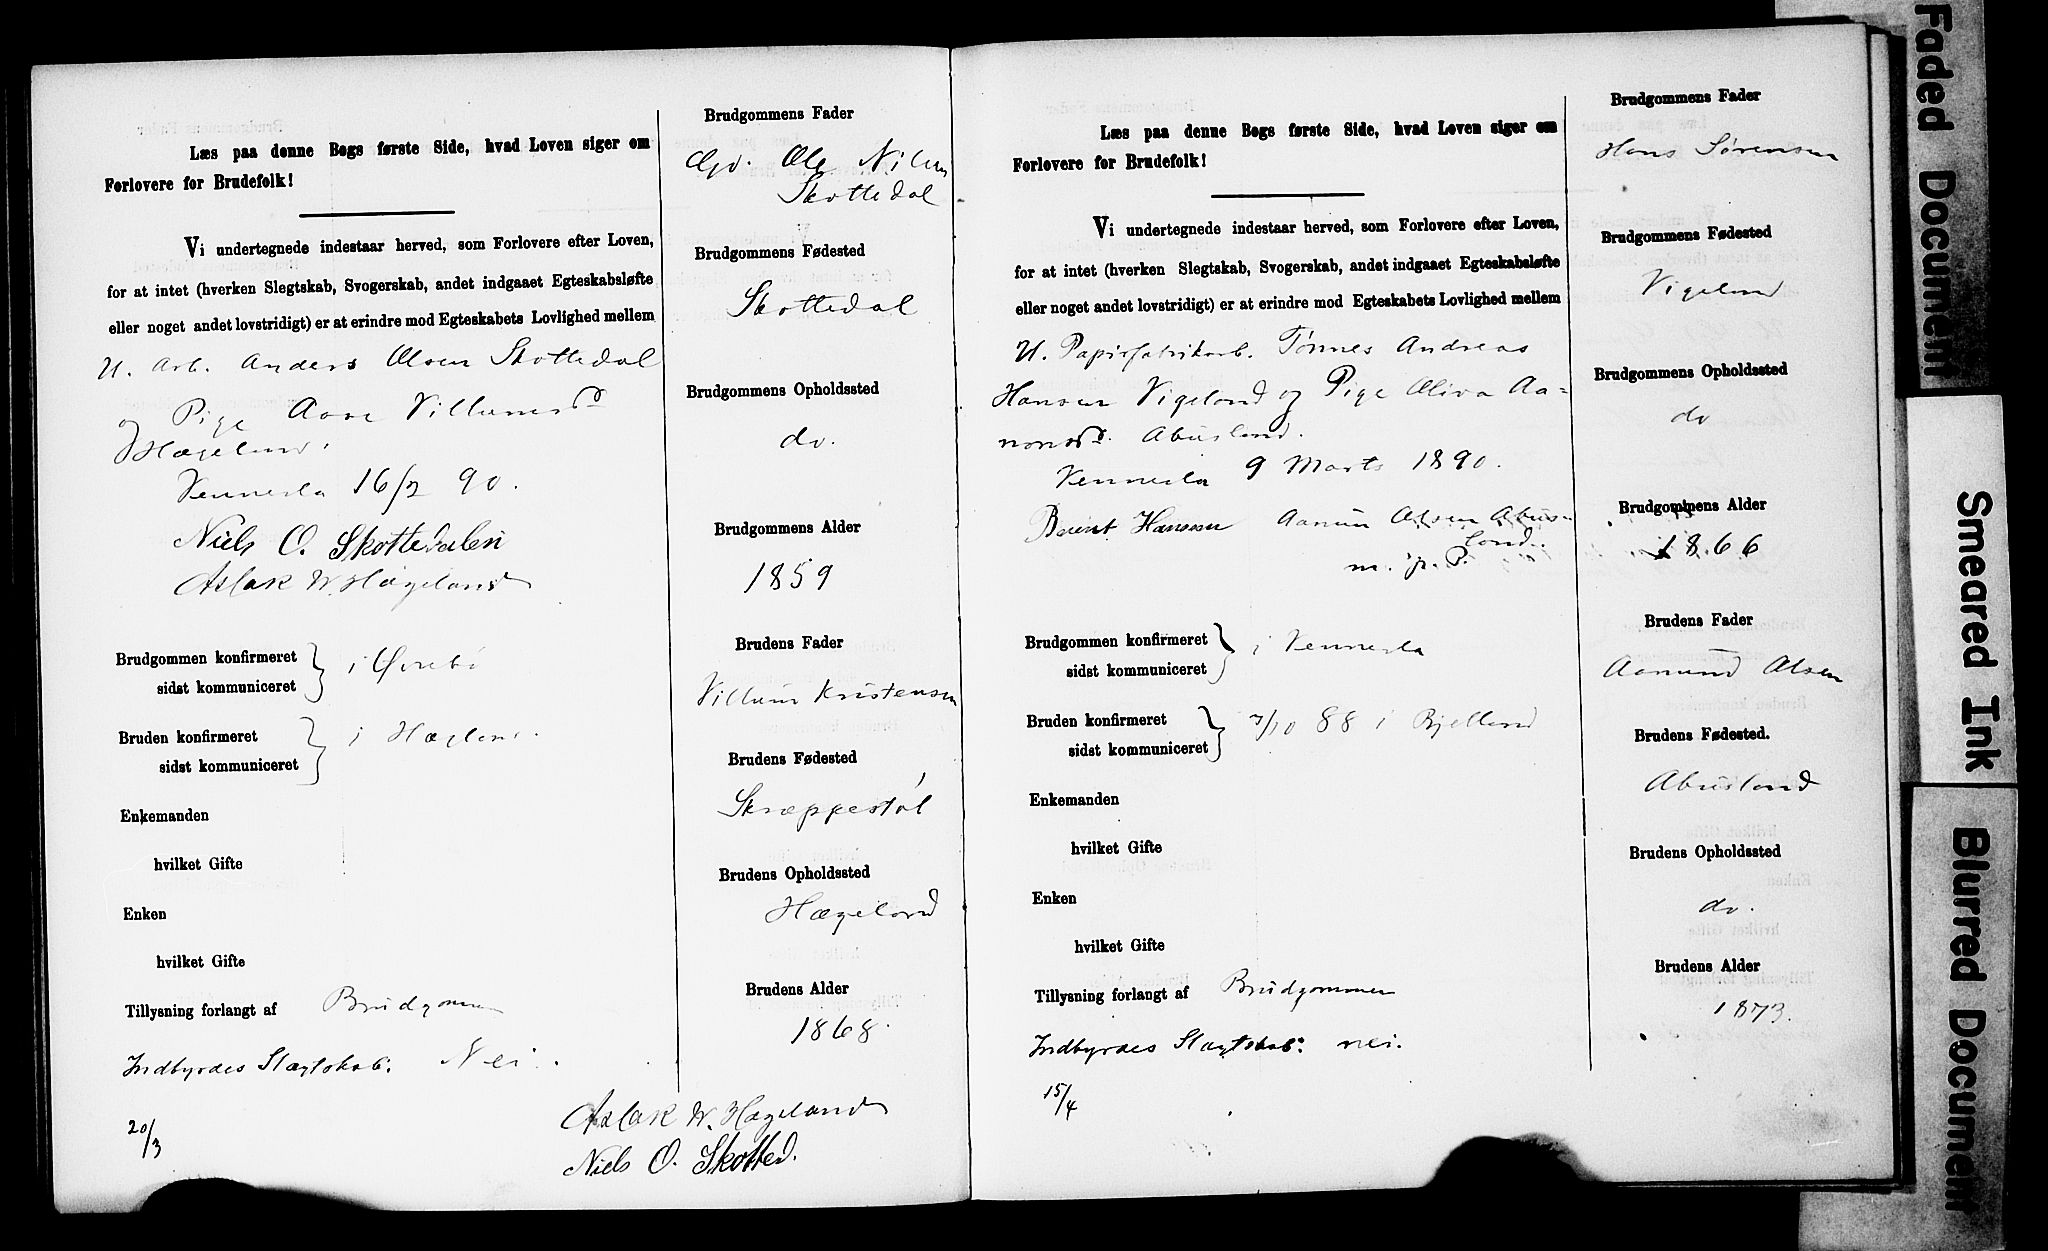 Læs paa denne Bogs første Side, hvad Loven siger om
Forlovere for Brudefolk!
Vi undertegnede indestaar herved, som Forlovere efter Loven,
for at intet (hverken Slegtskab, Svogerskab, andet indgaaet Egteskabsløfte
eller noget andet lovstridigt) er at erindre mod Egteskabets Lovlighed mellem
U. Arb. Anders Olsen Skottedal
og Pige Villumsd
Hægeland.
Vennesla 16/2 90.
Niels O. Skottedalen
Aslak W. Hægeland
Brudgommen konfirmeret
sidst kommuniceret
i Øvrebø
Bruden konfirmeret
sidst kommuniceret
i Hægeland.
Enkemanden
hvilket Gifte
Enken
hvilket Gifte
Tillysning forlangt af Brudgommen
Indbyrdes Slægtskab: Nei.
20/3
Aslak W. Hægeland
Niels O. Skotted.
Brudgommens Fader
Ole Nilsen
Skottedal
Brudgommens Fødested
Skottedal
Brudgommens Opholdssted
do.
Brudgommens Alder
1859
Brudens Fader
Villum Kristensen
Brudens Fødested
Skræppestøl
Brudens Opholdssted
Hægeland
Brudens Alder
1868.
Læs paa denne Bogs første Side, hvad Loven siger om
Forlovere for Brudefolk!
Vi undertegnede indestaar herved, som Forlovere efter Loven,
for at intet (hverken Slegtskab, Svogerskab, andet indgaaet Egteskabsløfte
eller noget andet lovstridigt) er at erindre mod Egteskabets Lovlighed mellem
U. Papirfabrikarb. Tønnes Andreas
Hansen Vigeland og Pige Oliva Aa=
nonsd. Abusland.
Vennesla 9 Marts 1890.
Berint Hansen Aanun Olsen Abus-
land.
m. p. P.
Brudgommen konfirmeret
sidst kommuniceret
i Vennesla
Bruden konfirmeret
sidst kommuniceret
7/10 88 i Bjelland
Enkemanden
hvilket Gifte
Enken
hvilket Gifte
Tillysning forlangt af Brudgommen
Indbyrdes Slægtskab: nei.
15/4
Brudgommens Fader
Hans Sørensen
Brudgommens Fødested
Vigeland
Brudgommens Opholdssted
do
Brudgommens Alder
1866
Brudens Fader
Aanund Olsen
Brudens Fødested.
Abusland
Brudens Opholdssted
do.
Brudens Alder
1873.
Faded Document
Smeared Ink
Blurred Document